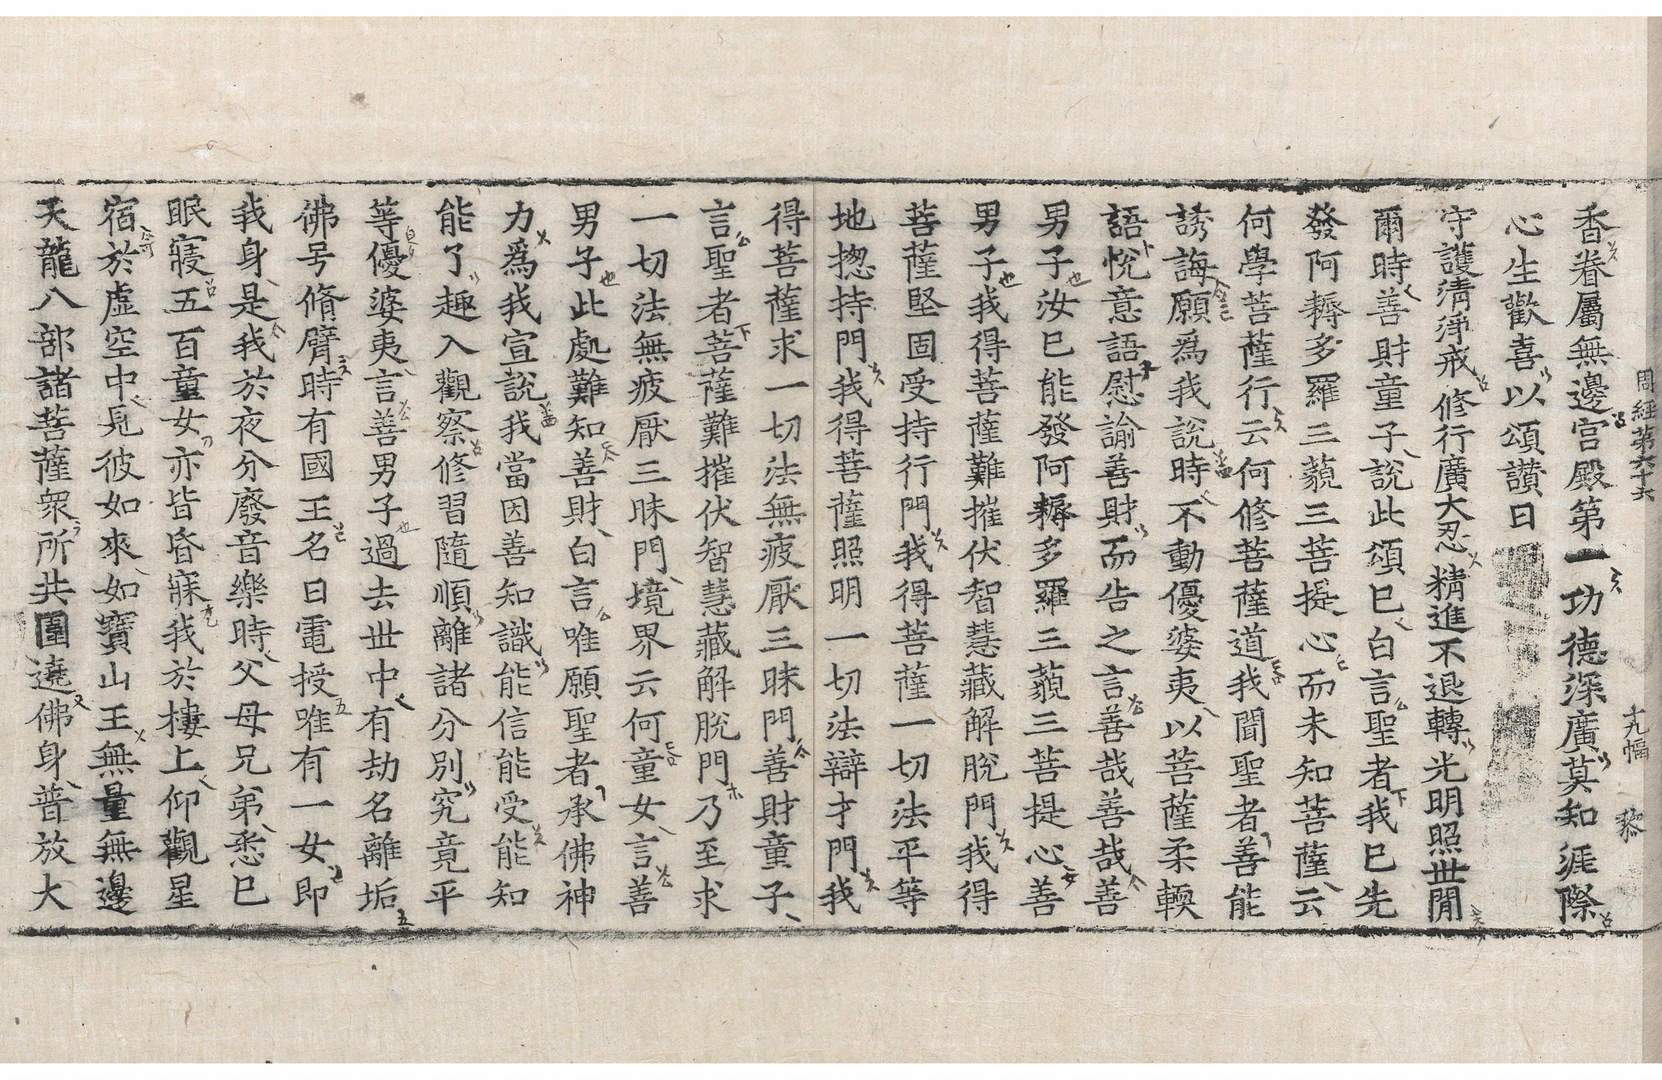 周經第六十六 十九幅 黎
香眷屬無邊宮殿第一功德深廣莫知涯際
心生歡喜以頌讚曰
守護清淨戒修行廣大忍精進不退轉光明照世閒
爾時善財童子說此頌已白言聖者我已先
發阿耨多羅三藐三菩提心而未知菩薩云
何學菩薩行云何修菩薩道我聞聖者善能
誘誨願爲我說時不動優婆夷以菩薩柔輭
語悅意語慰諭善財而告之言善哉善哉善
男子汝已能發阿耨多羅三藐三菩提心善
男子我得菩薩難摧伏智慧藏解脫門我得
菩薩堅固受持行門我得菩薩一切法平等
地揔持門我得菩薩照明一切法辯才門我
得菩薩求一切法無疲厭三昧門善財童子
言聖者菩薩難摧伏智慧藏解脫門乃至求
一切法無疲厭三昧門境界云何童女言善
男子此處難知善財白言唯願聖者承佛神
力爲我宣說我當因善知識能信能受能知
能了趣入觀察修習隨順離諸分別究竟平
等優婆夷言善男子過去世中有劫名離垢
佛号脩臂時有國王名曰電授唯有一女即
我身是我於夜分廢音樂時父母兄弟悉已
眠寢五百童女亦皆昏寐我於樓上仰觀星
宿於虛空中見彼如來如寶山王無量無邊
天龍八部諸菩薩衆所共圍遶佛身普放大